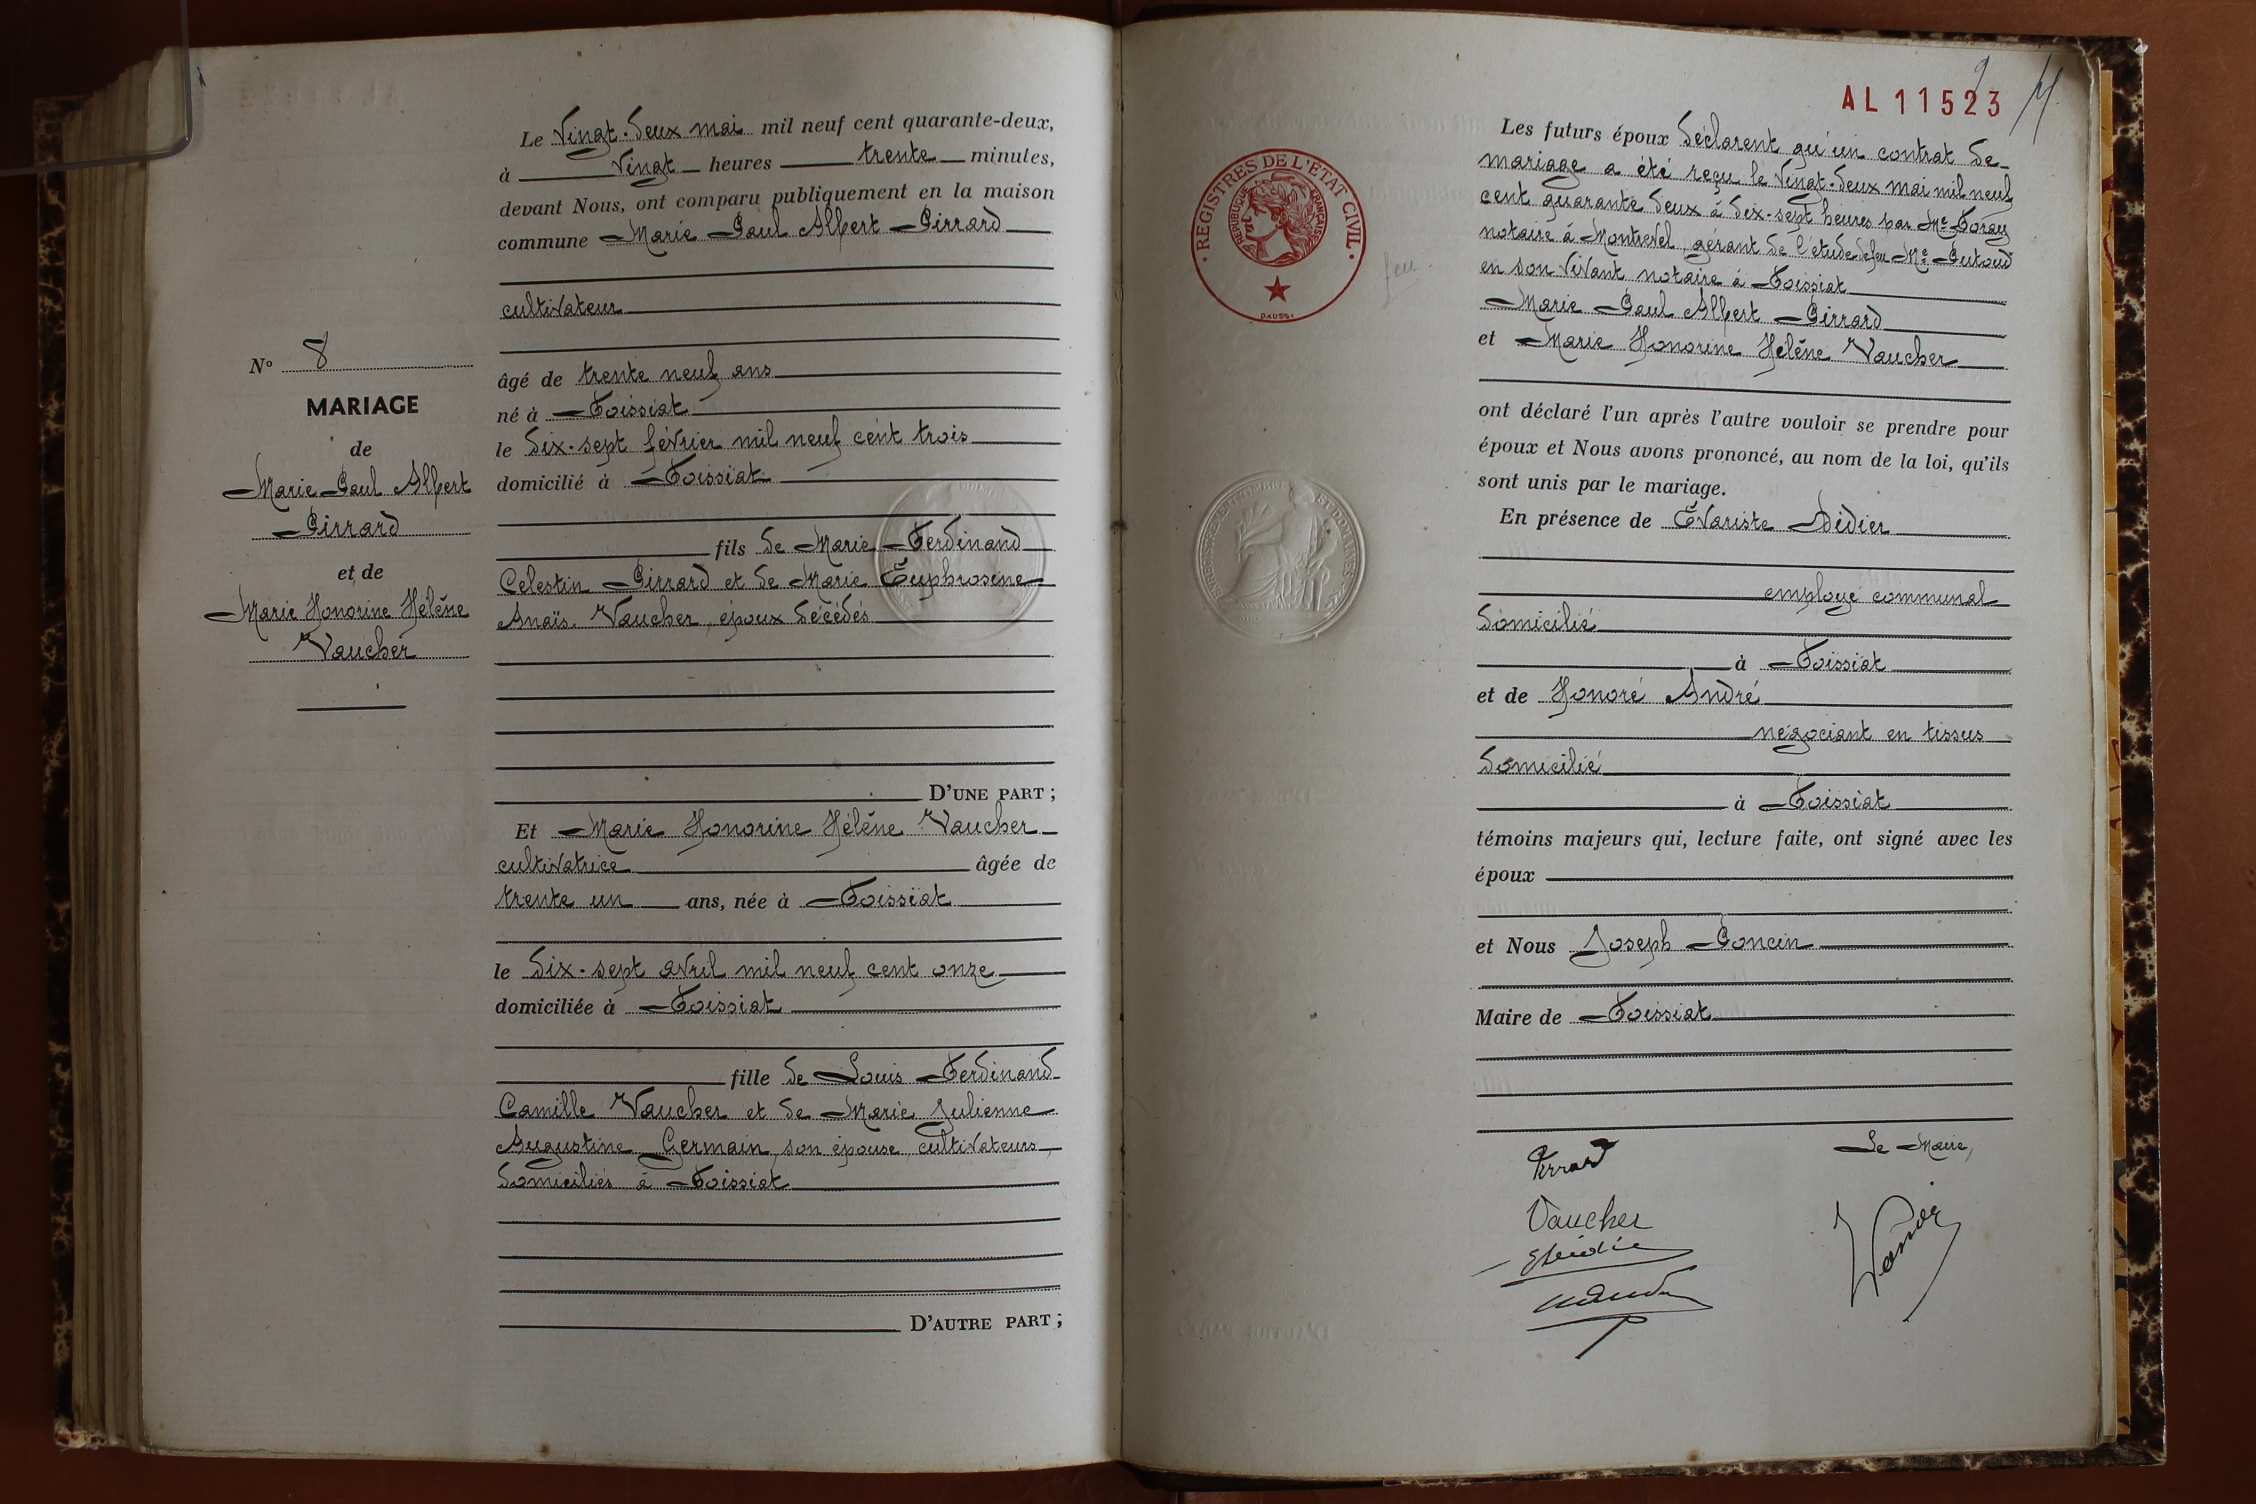 Le Vingt-deux mai mil neuf cent quarante-deux,
à Vingt heures trente minutes,
devant Nous, ont comparu publiquement en la maison
commune Marie Paul Albert Pirrard
cultivateur
N° 8
âgé de trente neuf ans
MARIAGE
né à Foissiat
de
le dix-sept février mil neuf cent trois
Marie Paul Albert
domicilié à Foissiat
Pirrard
fils de Marie Ferdinand
et de
Celestin Pirrard et de Marie Euphrosine
Marie Honorine Hélène
Anaïs Vaucher, époux décédés
Vaucher
D'UNE PART ;
Et Marie Honorine Hélène Vaucher
cultivatrice âgée de
trente un ans, née à Foissiat
le dix-sept avril mil neuf cent onze
domiciliée à Foissiat
fille de Louis Ferdinand
Camille Vaucher et de Marie Julienne
Augustine Germain, son épouse cultivateurs
domiciliés à Foissiat
D'AUTRE PART ;
AL 11523
REGISTRES DE L'ÉTAT CIVIL
RÉPUBLIQUE FRANÇAISE
feu
Les futurs époux déclarent qu'un contrat de
mariage a été reçu le Vingt-deux mai mil neuf
cent quarante deux à dix-sept heures par Me
notaire à Montrevel, gérant de l'étude de feu Me Putoud
en son vivant notaire à Foissiat
Marie Paul Albert Pirrard
et Marie Honorine Helène Vaucher
ont déclaré l'un après l'autre vouloir se prendre pour
époux et Nous avons prononcé, au nom de la loi, qu'ils
sont unis par le mariage.
En présence de Évariste Didier
employé communal
domicilié
à Foissiat
et de Honoré André
négociant en tissus
domicilié
à Foissiat
témoins majeurs qui, lecture faite, ont signé avec les
époux
et Nous Joseph Poncin
Maire de Foissiat
Le Maire,
Pirrard
Vaucher